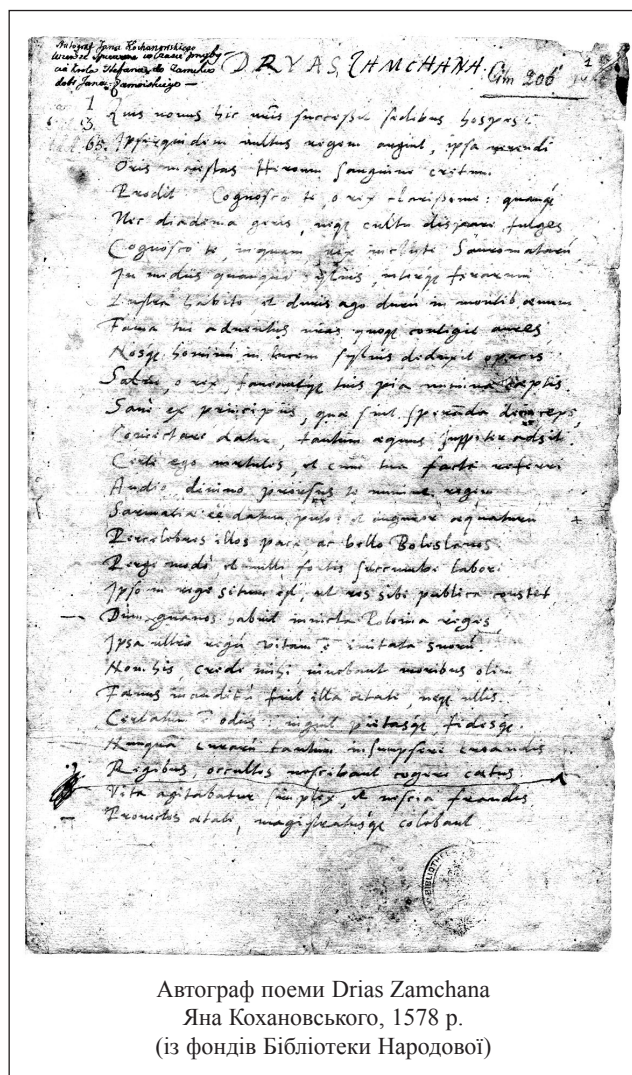 Autograf Jana Kochanowskiego
do Zamchu
dóbr Jana Zamoiskiego —
DRYAS ZAMCHANA.
Cim 206
1
1
3.
65.
Quis novus hic nr̃is successit sedibus hospes?
Ipse quidem vultus regem arguit, ipsa verendi
Oris maiestas Heroum sanguine cretum.
Prodit. Cognosco te, o rex clarissime: quanq̃
Nec diadema geris, neqȝ cultu dispare fulges
Cognosco te, inquam, rex inclute Sauromatarũ,
In mediis quanquam sylvis, interqȝ ferarum
Lustra habito et duris ago durũ in montibȝ aevum
Fama tui adventus meas quoqȝ contigit aures,
Nosqȝ hominũ in lucem sylvis deduxit opacis
Salve, o rex, faveantqȝ tuis pia numina cæptis.
Sane ex principiis, quæ sint sperãda deinceps,
Coniectare datur, tantum æquus Juppiter adsit
Certe ego cum tua facta referri
Audio, divino prorsus te munere regem
Sarmatiæ datum puto, et æquaturũ
Percelebres illos pace, ac bello Boleslavos
Perge modo, et nulli fortis succumbe labori
Ipso in rege situm est, ut res sibi publica constet
— Dum quanos habuit invicta Polonia reges
Ipsa ultro regũ vitam ẽ imitata suorũ.
Non his, crede mihi, vivebant moribus olim,
Fænus inauditũ fuit illa ætate, neqȝ ullis
Certatum ẽ odiis: viguit pietasqȝ, fidesqȝ.
Nunquã curarũ tantum insumpsere creandis
Regibus, occultos nescibant cogere cætus.
Vita agitabatur simplex, et nescia fraudis
— Provectos ætate, magistratusqȝ colebant
Автограф поеми Drias Zamchana
Яна Кохановського, 1578 р.
(із фондів Бібліотеки Народової)